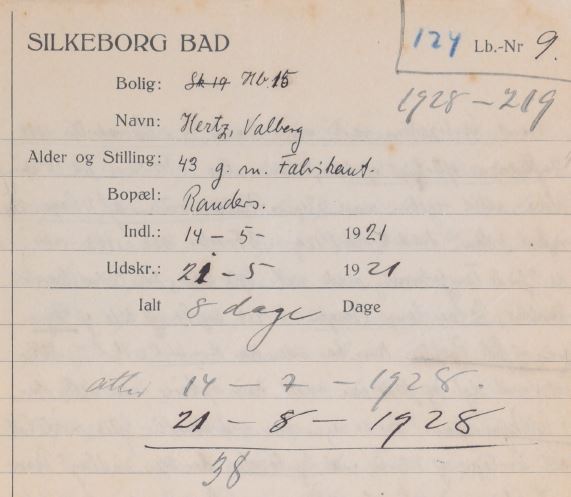 SILKEBORG BAD
124 Lb.-Nr 9.
1928-219
Bolig: Sk 19 Hb. 15
Navn: Hertz, Valberg
Alder og Stilling: 43 g. m. Fabrikant.
Bopæl: Randers.
Indl.: 14 - 5 - 1921
Udskr.: 21 - 5 1921
Ialt 8 dage Dage
atter 14 - 7 - 1928.
21 - 8 - 1928
38